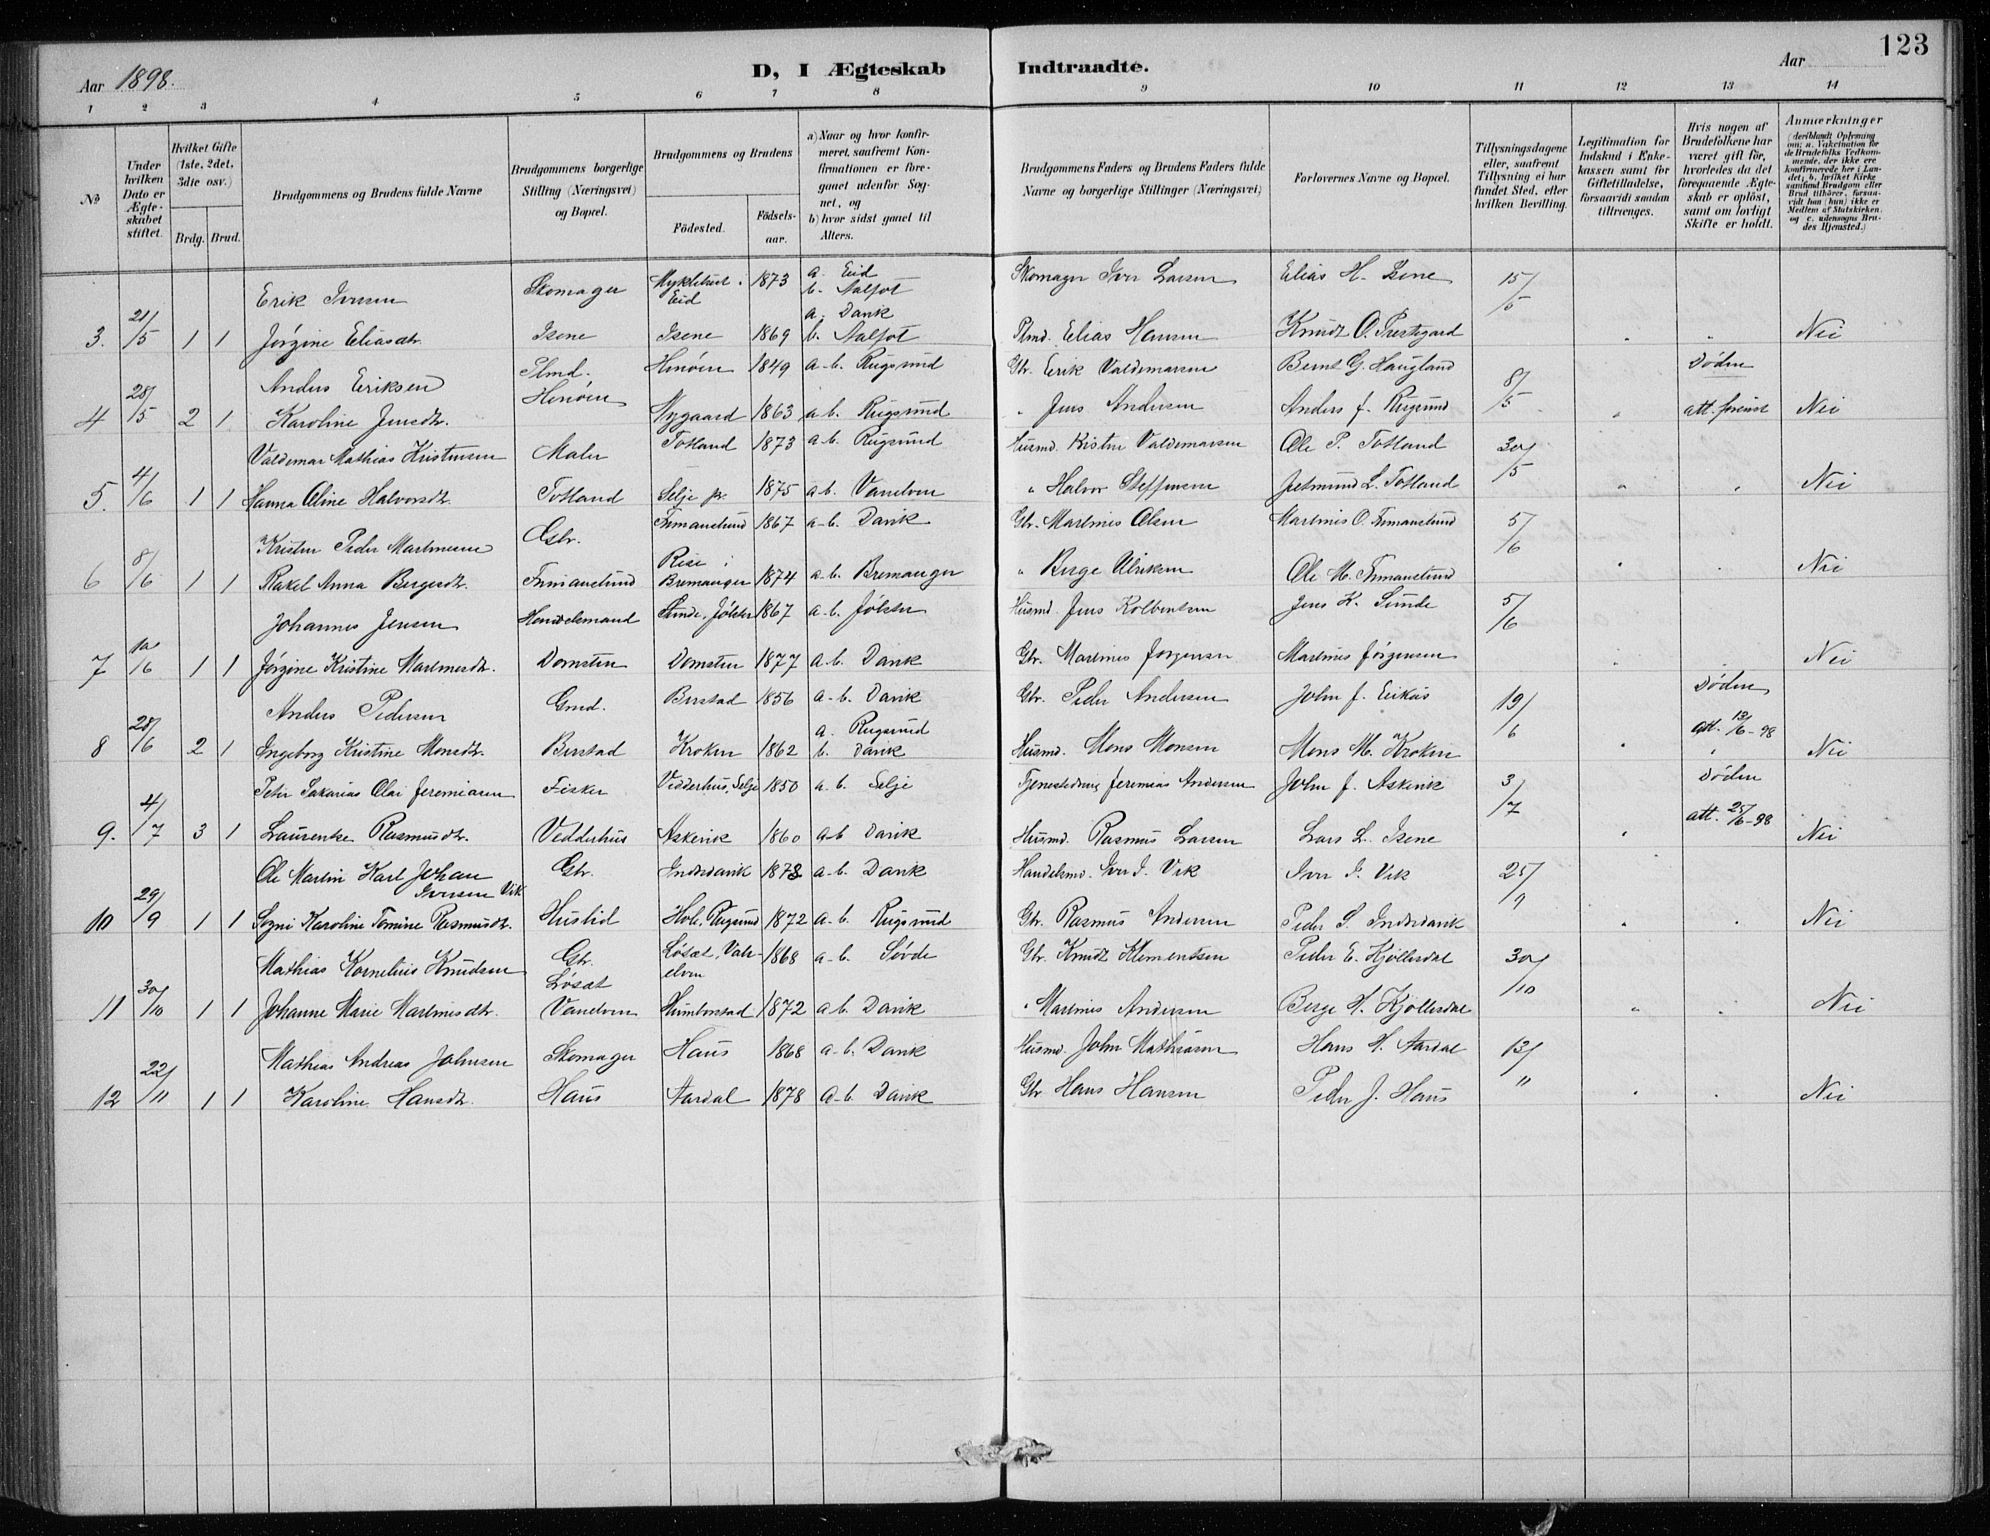 123
Aar 1898.
D, I Ægteskab Indtraadte.
Aar
1 2 3 4 5 6 7 8 9 10 11 12 13 14
№
Under hvilken Dato er Ægteskabet stiftet.
Hvilket Gifte (1ste, 2det, 3die osv.)
Brdg. Brud.
Brudgommens og Brudens fulde Navne
Brudgommens borgerlige Stilling (Næringsvei) og Bopæl.
Brudgommens og Brudens
Fødested. Fødsels-aar.
a) Naar og hvor konfirmeret, saafremt Konfirmationen er foregaaet udenfor Sognet, og b) hvor sidst gaaet til Alters.
Brudgommens Faders og Brudens Faders fulde Navne og borgerlige Stillinger (Næringsvei)
Forlovernes Navne og Bopæl.
Tillysningsdagene eller, saafremt Tillysning ei har fundet Sted, efter hvilken Bevilling.
Legitimation for Indskud i Enkekassen samt for Giftetilladelse, forsaavidt saadan tiltrænges.
Hvis nogen af Brudefolkene har været gift før, hvorledes da det foregaaende Ægteskab er opløst, samt om lovligt Skifte er holdt.
Anmærkninger
Erik Iversen Skomager Myklebust i Eid 1873 a. Eid b. Aalfot Skomager Iver Larsen Elias H. Isene 15/5
3. 21/5 1 1 Jørgine Eliasdtr. Isene Isene 1869 a. Davik b. Aalfot Elias Hansen Knudt O. Prestegard " " Nei
Anders Eriksen Henøen 1849 a-b. Rugsund Gbr. Erik Valdemarsen Bernt G. Haugland 8/5 Døden
4 28/5 2 1 Karoline Jensdtr. Henøen Nygaard 1863 a-b. Rugsund " Jens Andersen Anders J. Rugsund " att. forevist Nei
Valdemar Mathias Kristensen Maler Totland 1873 a-b. Rugsund Husmd. Kristen Valdemarsen Ole P. Totland 30/5
5. 4/6 1 1 Hanna Oline Halvorsdtr. Totland Selje pr. 1875 a-b. Vanelven " Halvor Steffensen L. Totland " " Nei
Kristen Peder Martinesen Gbr. 1867 a-b. Davik Gbr. Martines Olsen Martines O. 5/6
6 8/6 1 1 Rakel Anna Bergesdtr. Rise i Bremanger 1874 a-b. Bremanger " Berge Ulriksen Ole M. " " Nei
Johannes Jensen Handelsmand Sunde, Jølster 1867 a-b. Jølster Husmd. Jens Kolbentsen Jens K. Sunde 5/6
7 10/6 1 1 Jørgine Kristine Martinesdtr. Domsten Domsten 1877 a-b. Davik Gbr. Martines Jørgensen Martines Jørgensen " " Nei
Anders Pedersen Gmd. Berstad 1856 a-b. Davik Gbr. Peder Andersen John J. Eikås 19/6 Døden
8 28/6 2 1 Ingeborg Kristine Monsdtr. Berstad Kroken 1862 a. Rugsund b. Davik Husmd. Mons Monsen Mons M. Kroken " att. 13/6-98 Nei
Peter Sakarias Olai Jeremiasen Fisker Vedderhus, Selje 1850 a-b. Selje Tjenestedreng Jeremias Andersen John J. Askevik 3/7 Døden
9. 4/7 3 1 Laurentse Rasmusdtr. Vedderhus Askevik 1860 a-b Davik Husmd. Rasmus Larsen Lars L. Isene " att. 25/6-98 Nei
Ole Martin Karl Johan Iversen Vik Gbr. Indredavik 1873 a-b. Davik Handelsmd. Iver I. Vik Iver I. Vik 25/
10 29/9 1 1 Karoline Tomine Rasmusdtr. Hustid Hole, Rugsund 1872 a-b. Rugsund Gbr. Rasmus Andersen Peder S. Indredavik " " Nei
Mathias Kornelius Knudsen Gbr. Løsæt Løsæt, Vanelven 1868 a-b. Søvde Gbr. Knudt Klementsen Peder E. Kjøllesdal 30/10
11 30/10 1 1 Johanne Marie Martinesdtr. Vanelven Humberstad 1872 a-b Davik " Martines Andersen Berge H. Kjøllesdal " " Nei
Mathias Andreas Johnsen Skomager Haus 1868 a-b. Davik Husmd. John Mathiasen Hans H. Aardal 13/11
12 22/11 1 1 Karoline Hansdtr. Haus Aardal 1878 a-b. Davik Gbr Hans Hansen Peder J. Haus " " Nei